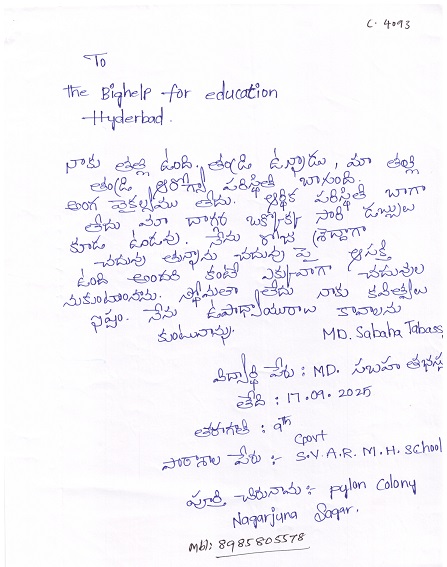 C. 4093
To
the Bighelp for education
Hyderbad.
నాకు తల్లి ఉంది. తండ్రి ఉన్నాడు, మా తల్లి
తండ్రి ఆరోగ్య పరిస్థితి బాగుంది.
అంగ వైకల్యము లేదు. ఆర్థిక పరిస్థితి బాగా
లేదు మా దగ్గర ఒక్కొక్క సారి డబ్బులు
కూడ ఉండవు. నేను రోజు శ్రద్దగా
చదువు తున్నాను చదువు పై ఆసక్తి
ఉంది అందరి కంటే ఎక్కువగా చదువుల
నుకుంటున్నాను. లేదు నాకు కవిత్వలు
ఇష్టం. నేను ఉపాధ్యాయురాలు కావాలను
కుంటున్నాను.
MD. Sabaha Tabass
విద్యార్థి పేరు : MD. సబహ తభస్సు
తేది : 17.09.2025
తరగతి : 9th
Govt
పాఠశాల పేరు :- S.V.A.R.M.H. School
పూర్తి చిరునామ :- pylon Colony
Nagarjuna Sagar.
Mbl: 8985805578